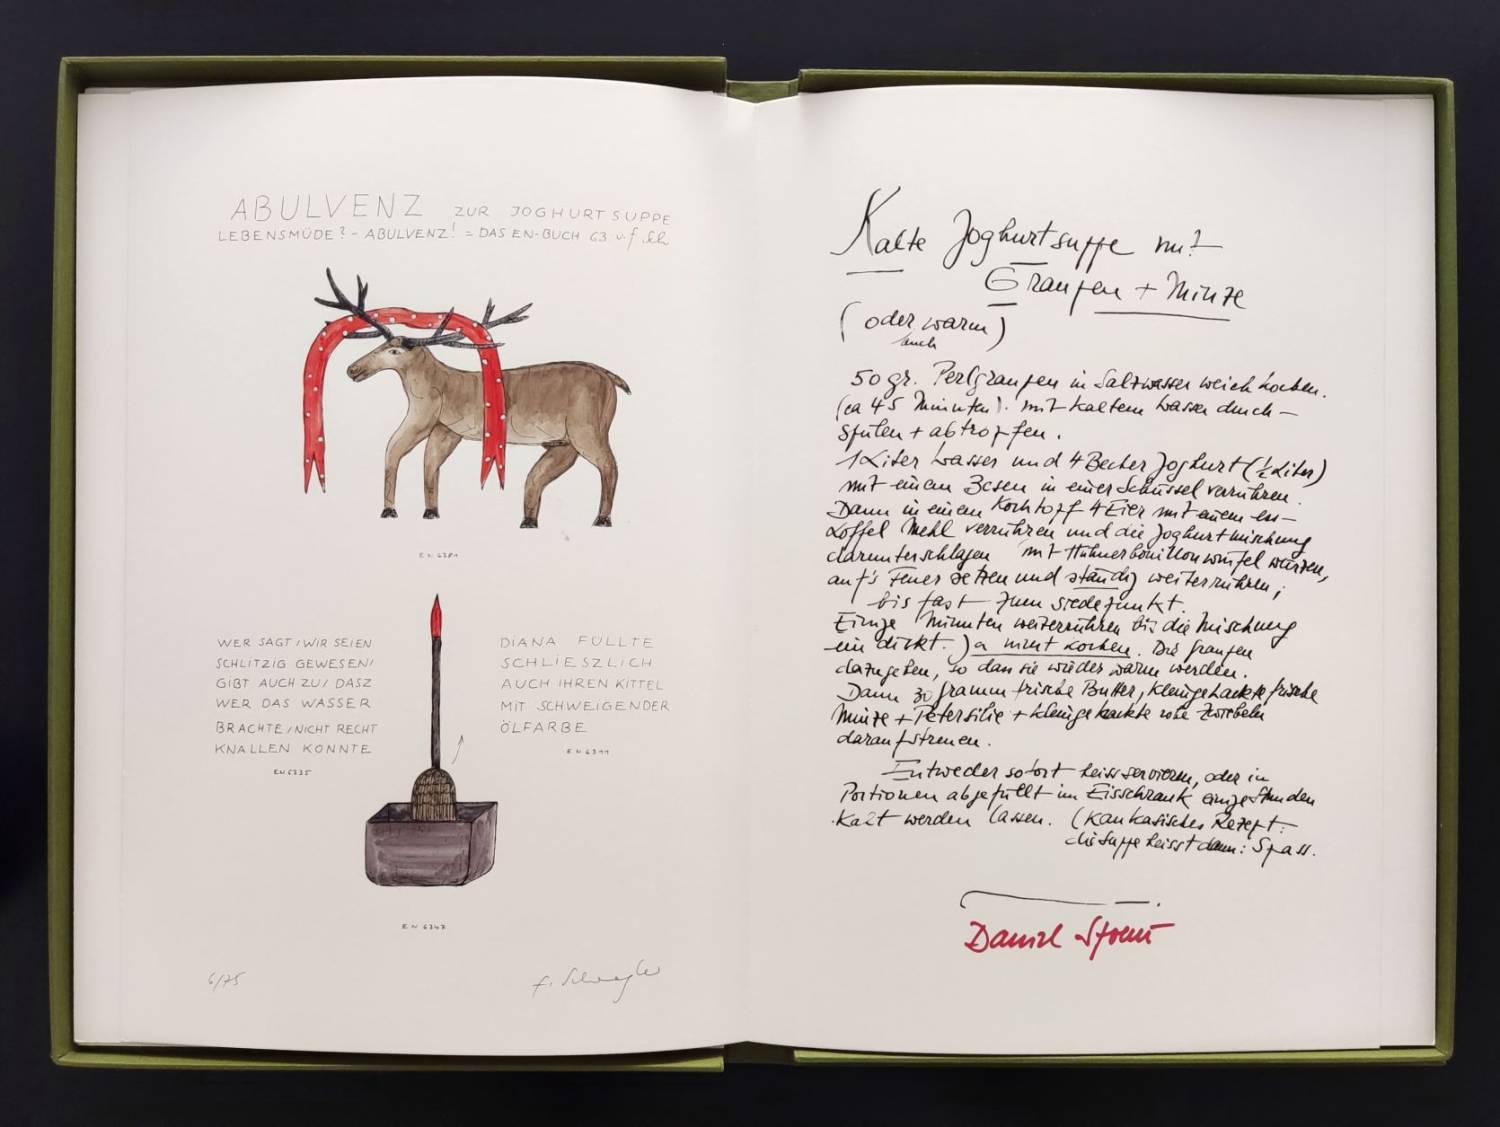 ABULVENZ ZUR JOGHURTSUPPE
LEBENSMÜDE? - ABULVENZ! = DAS EN-BUCH 63 u.f Sch
EN 6381
WER SAGT, WIR SEIEN
SCHLITZIG GEWESEN,
GIBT AUCH ZU, DASZ
WER DAS WASSER
BRACHTE, NICHT RECHT
KNALLEN KONNTE
EN 6335
DIANA FÜLLTE
SCHLIESZLICH
AUCH IHREN KITTEL
MIT SCHWEIGENDER
ÖLFARBE
EN 6311
EN 6343
6/75
Kalte Joghurtsuppe mit
Graupen + Minze
(oder warm)
auch
50 gr. Perlgraupen in Salzwasser weich kochen.
(ca 45 Minuten). mit kaltem Wasser durch-
spülen + abtropfen.
1 Liter Wasser und 4 Becher Joghurt (½ Liter)
mit einem Besen in einer Schüssel verrühren.
Dann in einem Kochtopf 4 Eier mit einem ess-
Löffel Mehl verrühren und die Joghurtmischung
darunterschlagen mit Hühnerbouillonwürfel würzen,
auf's Feuer setzen und ständig weiterrühren,
bis fast zum Siedepunkt.
Einige Minuten weiterrühren bis die Mischung
eindickt. Ja nicht kochen. Die Graupen
dazugeben, so dass sie wieder warm werden.
Dann 30 Gramm frische Butter, kleingehackte frische
Minze + Petersilie + kleingehackte rohe Zwiebeln
daraufstreuen.
Entweder sofort heiss servieren, oder in
Portionen abgefüllt im Eisschrank einige Stunden
kalt werden lassen. (Kaukasisches Rezept:
die Suppe heisst dann: Spass.
Daniel Spoerri